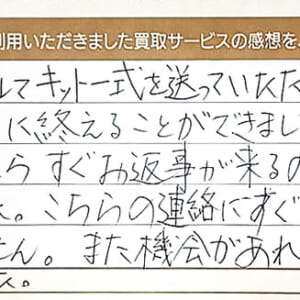 利用いただきました買取サービスの感想を
してキット一式を送っていただ
に終えることができまし
らすぐお返事が来るの
た。こちらの連絡にすぐ
せん。また機会があれ